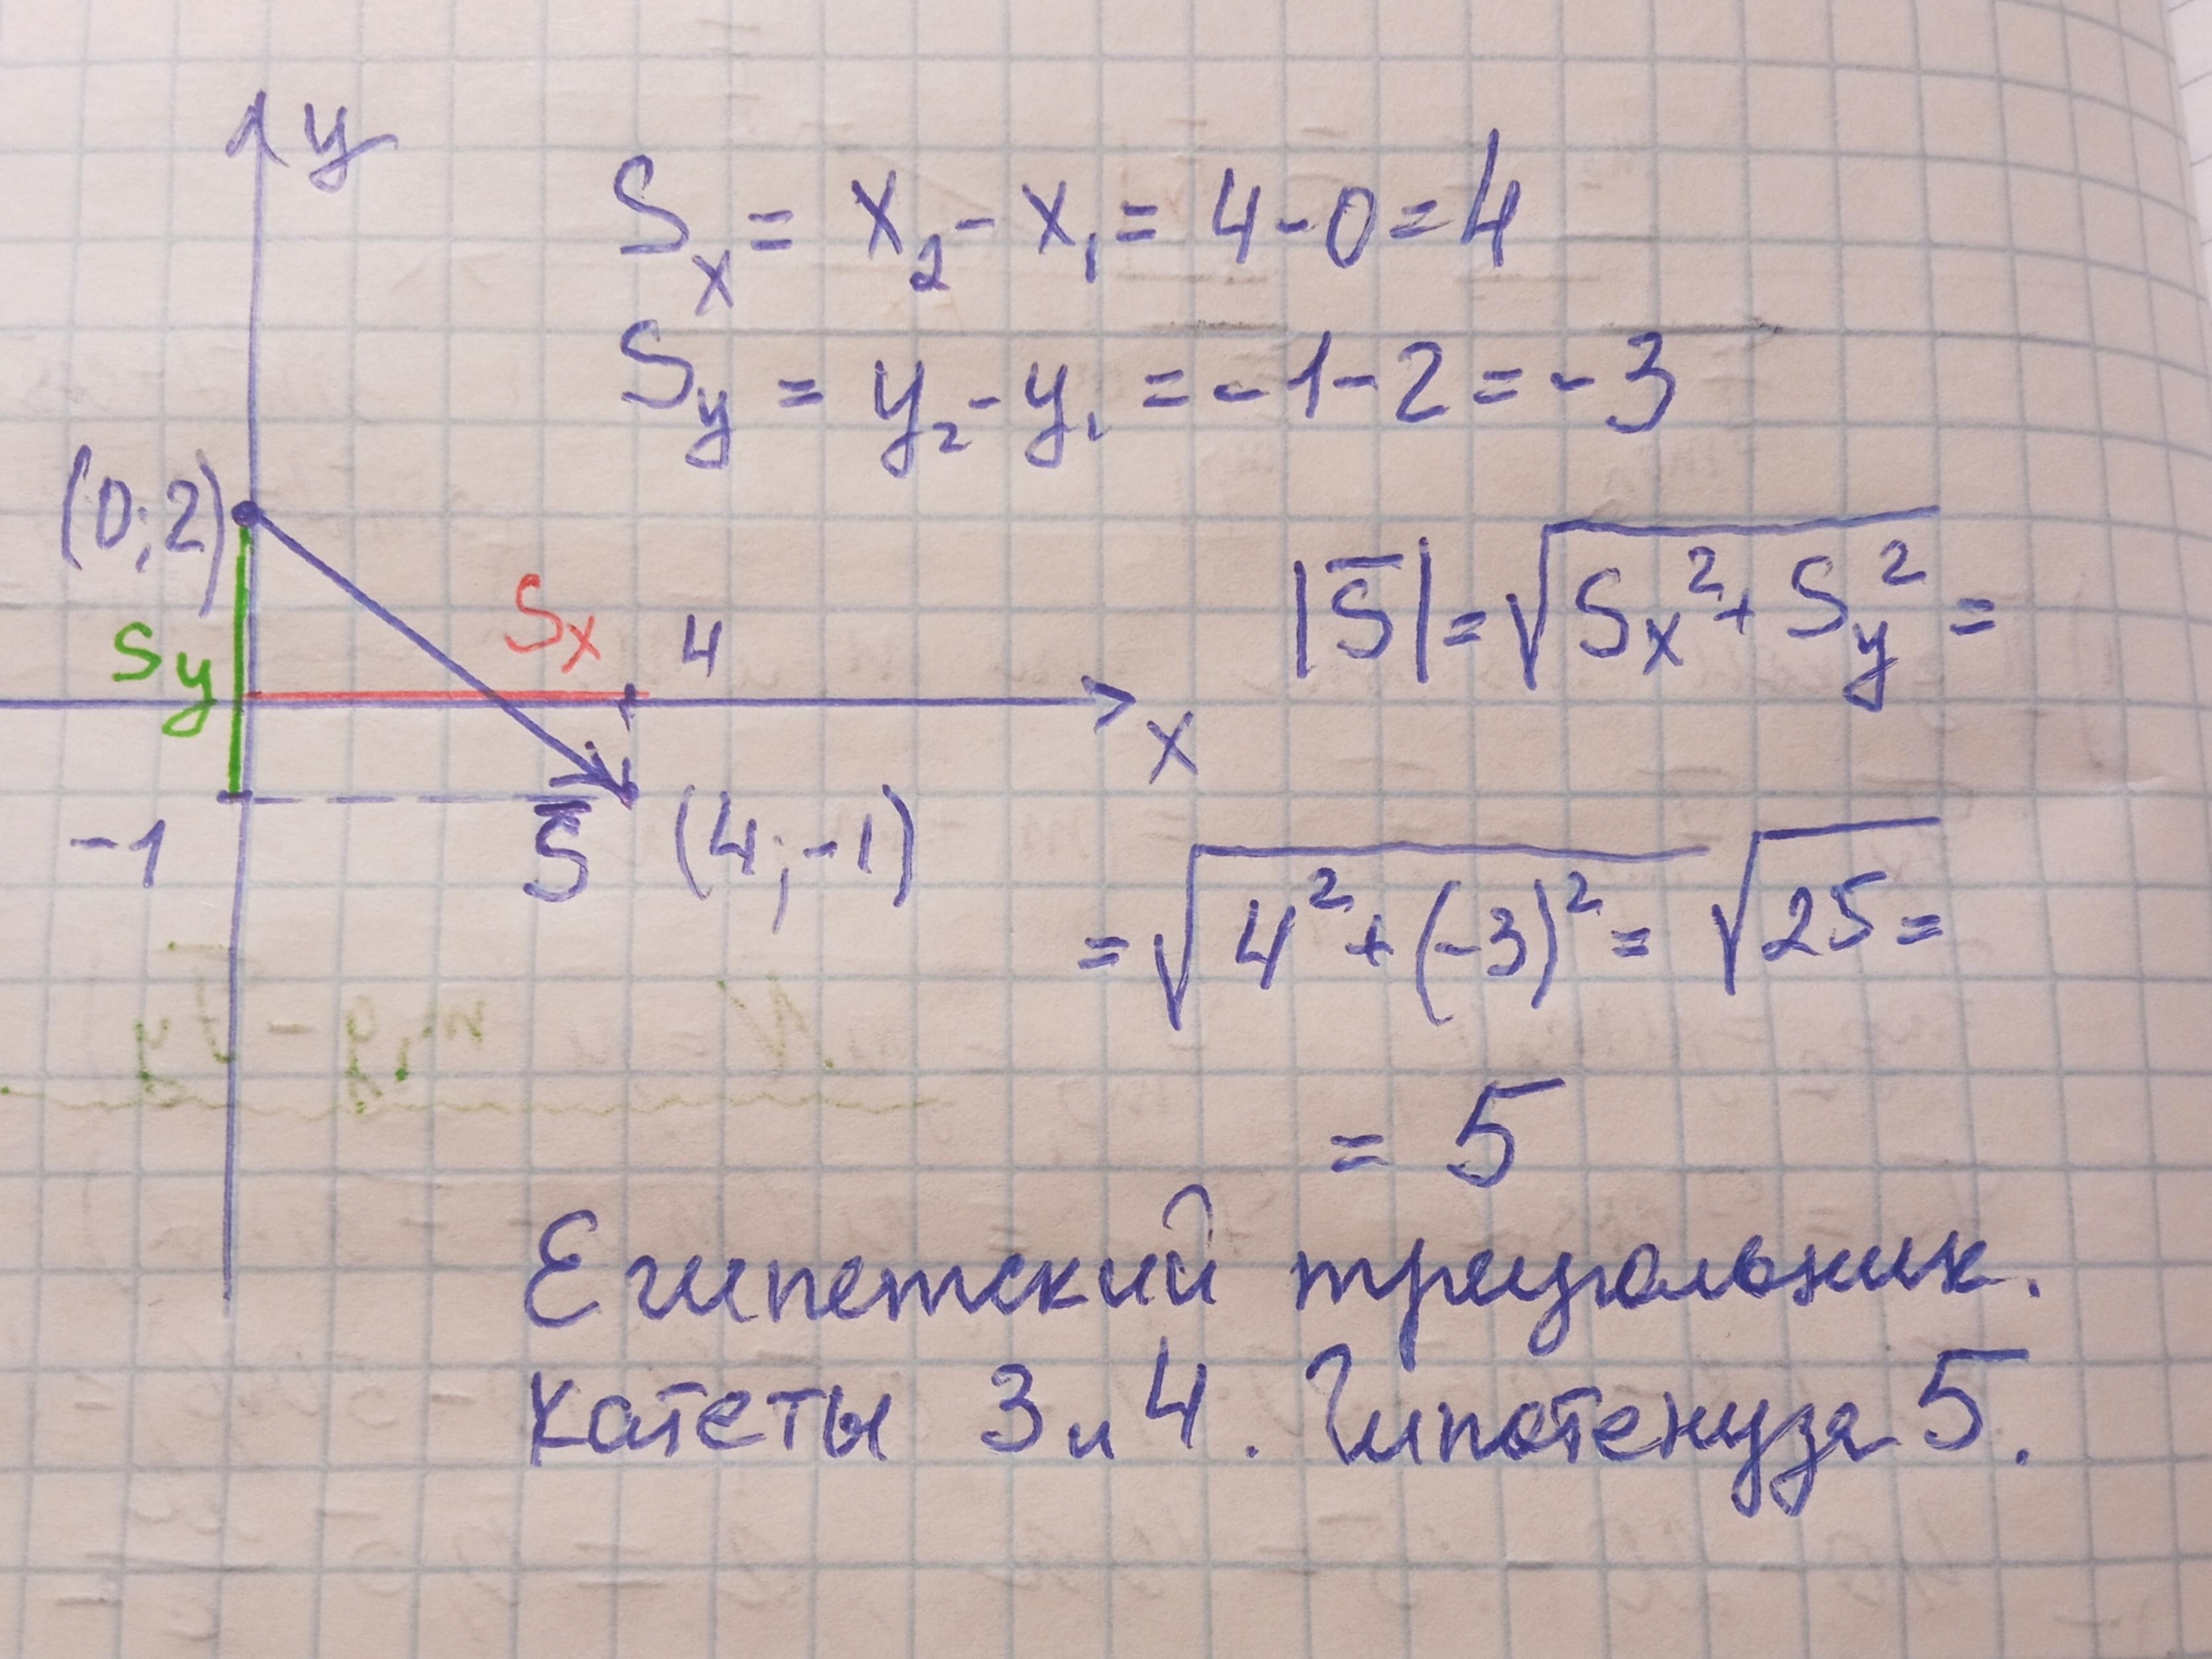 y
Sx = x₂ - x₁ = 4 - 0 = 4
Sy = y₂ - y₁ = -1 - 2 = -3
(0; 2)
Sy
Sx
4
x
-1
S̅
(4; -1)
|S̅| = √(Sx² + Sy²) =
= √(4² + (-3)²) = √25 =
= 5
Египетский треугольник.
Катеты 3 и 4. Гипотенуза 5.